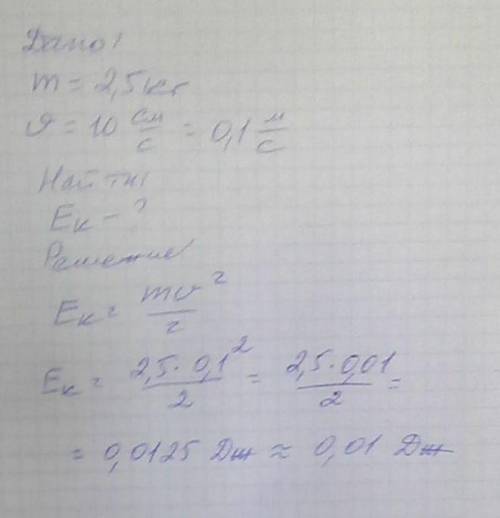 Дано:
m = 2,5 кг
υ = 10 см/с = 0,1 м/с
Найти:
Eк - ?
Решение
Eк = mυ²/2
Eк = 2,5 · 0,1²/2 = 2,5 · 0,01/2 =
= 0,0125 Дж ≈ 0,01 Дж